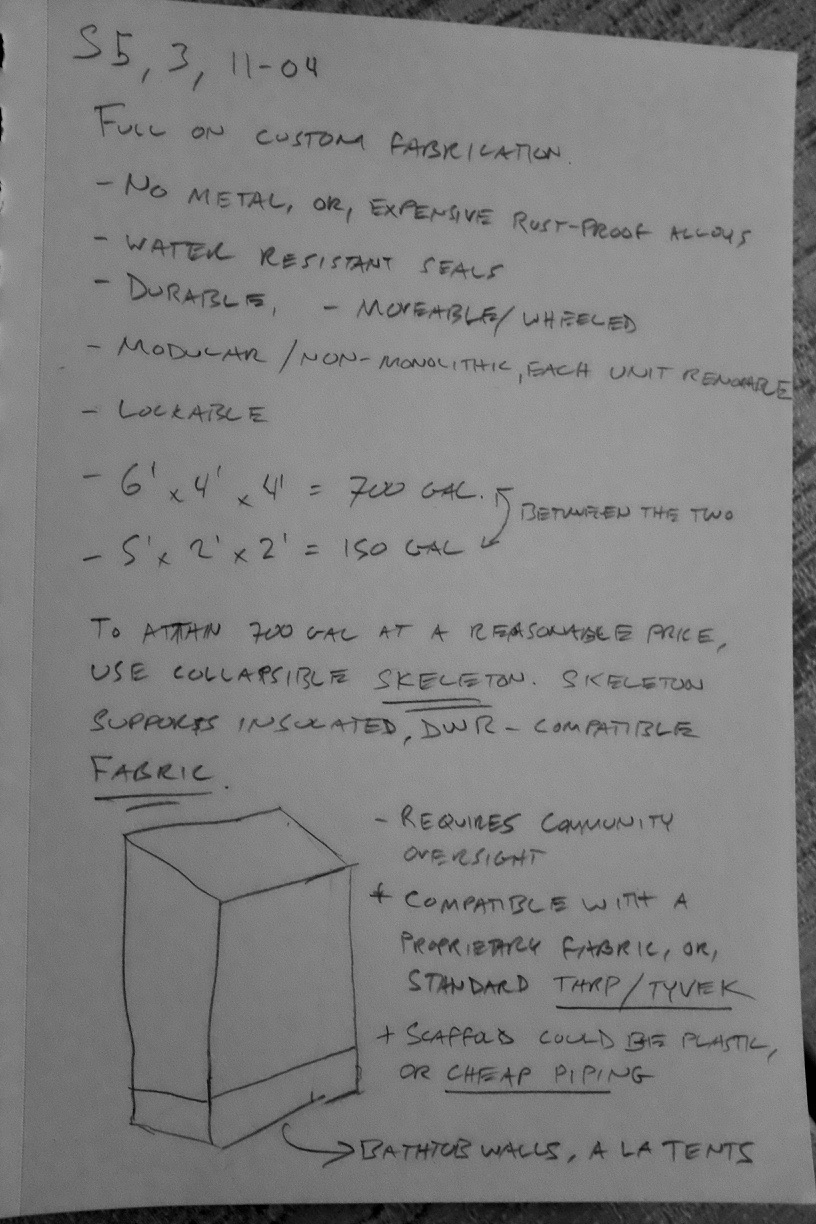 S5, 3, 11-04
FULL ON CUSTOM FABRICATION.
- NO METAL, OR, EXPENSIVE RUST-PROOF ALLOYS
- WATER RESISTANT SEALS
- DURABLE, - MOVEABLE/WHEELED
- MODULAR/NON-MONOLITHIC, EACH UNIT REMOVABLE
- LOCKABLE
- 6' x 4' x 4' = 700 GAL.
BETWEEN THE TWO
- 5' x 2' x 2' = 150 GAL
TO ATTAIN 700 GAL AT A REASONABLE PRICE,
USE COLLAPSIBLE SKELETON. SKELETON
SUPPORTS INSULATED, DWR-COMPATIBLE
FABRIC.
- REQUIRES COMMUNITY
OVERSIGHT
+ COMPATIBLE WITH A
PROPRIETARY FABRIC, OR,
STANDARD TARP/TYVEK
+ SCAFFOLD COULD BE PLASTIC,
OR CHEAP PIPING
BATHTUB WALLS, A LA TENTS